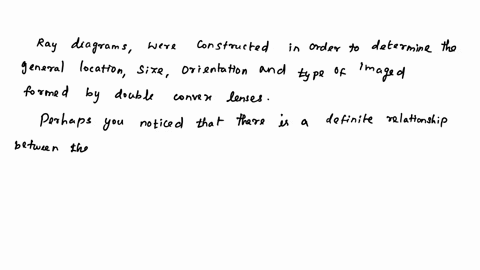 Ray diagrams, were constructed in order to determine the
general location, size, orientation and type of imaged
formed by double convex lenses.
Perhaps you noticed that there is a definite relationship
between the